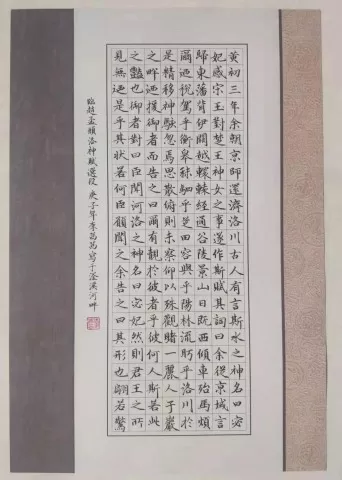 黃初三年余朝京師還濟洛川古人有言斯水之神名曰宓
妃感宋玉對楚王神女之事遂作斯賦其詞曰余從京域言
歸東藩背伊闕越轘轅經通谷陵景山日既西傾車殆馬煩
爾迺税駕乎蘅皋秣駟乎芝田容與乎陽林流眄乎洛川於
是精移神駭忽焉思散俯則未察仰以殊觀睹一麗人于巖
之畔迺援御者而告之曰爾有覿於彼者乎彼何人斯若此
之豔也御者對曰臣聞河洛之神名曰宓妃然則君王之所
見無迺是乎其狀若何臣願聞之余告之曰其形也翩若驚
臨趙孟頫洛神賦選段 庚子年李 寫于 溪河畔